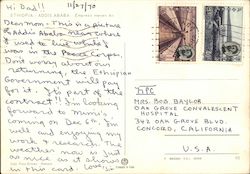 Hi Dad!! 11/27/70
ETHIOPIA - ADDIS ABABA
Dear Mom - This is a picture
of Addis Ababa near where
I used to live while I
was in the Peace Corps.
Don't worry about our
returning, the Ethiopian
Government will pay
for it. It's part of the
contract!! I'm looking
forward to Mimi's
coming on Dec 6th. I'm
well and enjoying my
work & research. The
weather now is just
as nice as it shows
in this card.
Love
MRS. BOB BAYLOR
OAK GROVE CONVALESCENT
HOSPITAL
342 OAK GROVE BLVD.
CONCORD, CALIFORNIA
U.S.A.